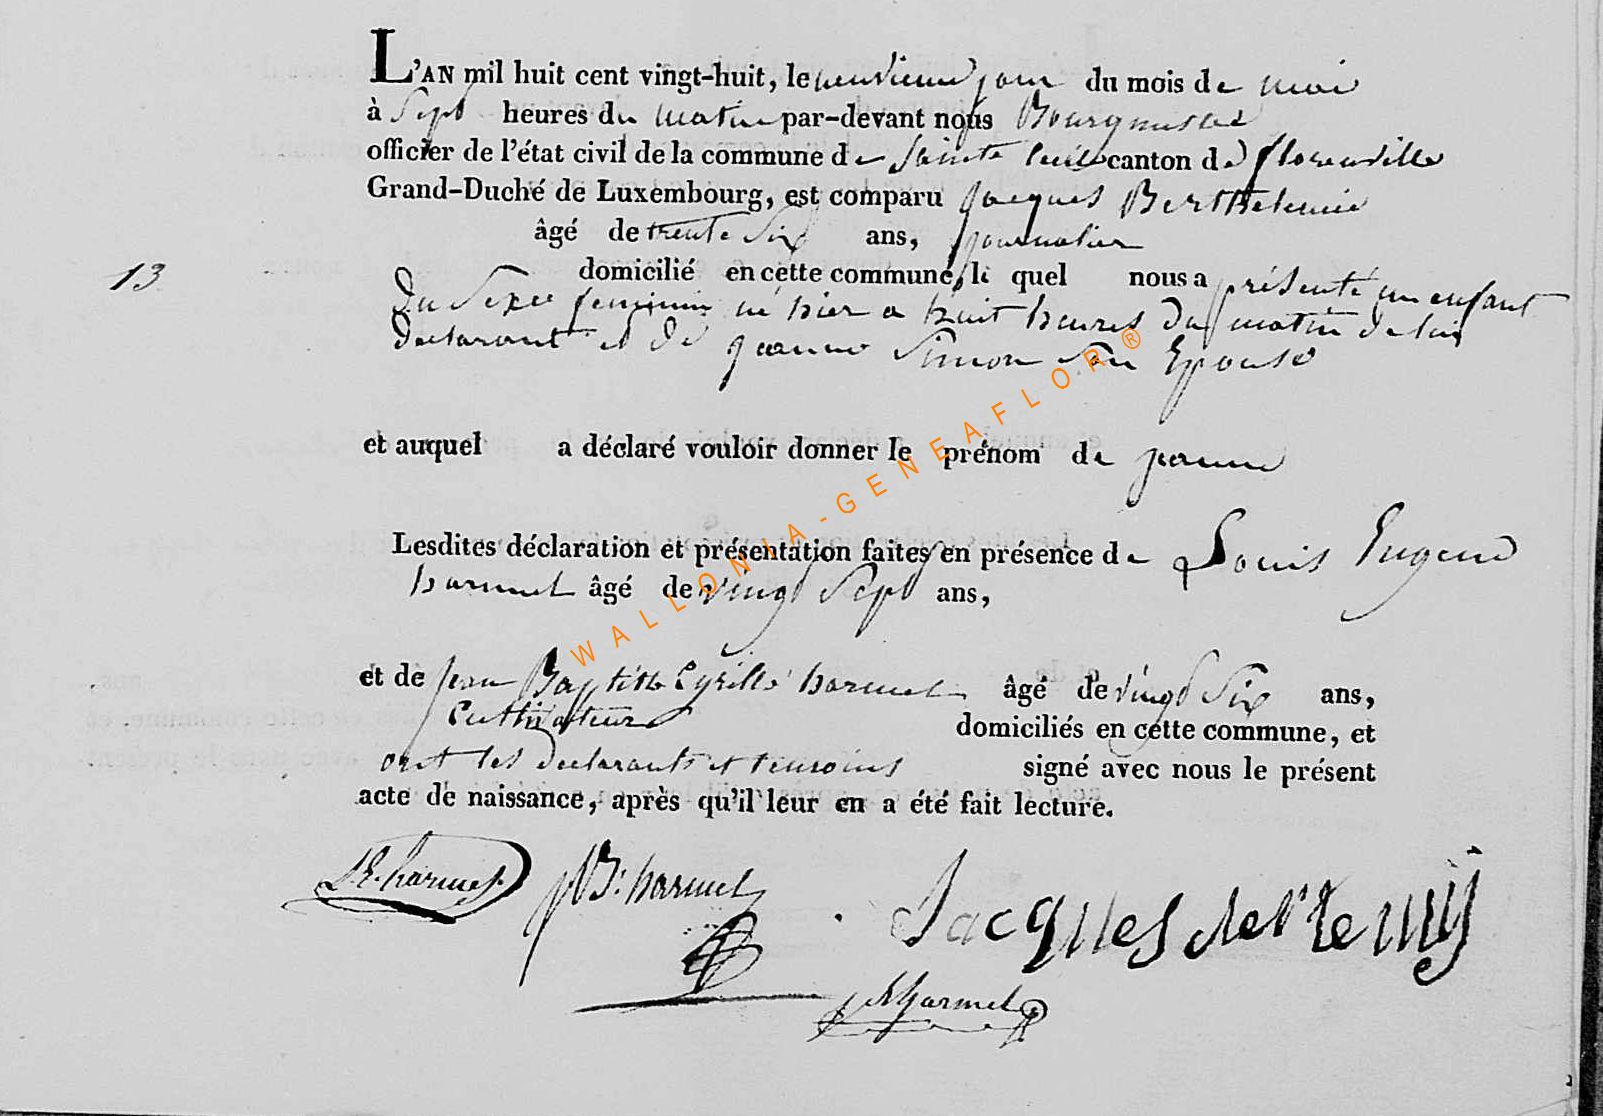 L'AN mil huit cent vingt-huit, le neuvieme jour du mois de mai
à Sept heures du matin par-devant nous Bourgmestre
officier de l'état civil de la commune de Sainte Cecile canton de florenville
Grand-Duché de Luxembourg, est comparu jacques Berthelemie
âgé de trente Six ans, journalier
13
domicilié en cette commune, le quel nous a présenté un enfant
du Sexe feminin né hier a huit heures du matin de lui
declarant et de jeanne Simon Son Epouse
et auquel a déclaré vouloir donner le prénom de jeanne
Lesdites déclaration et présentation faites en présence de Louis Eugene
harmel âgé de vingt Sept ans,
et de jean Baptiste Cyrille harmel âgé de vingt Six ans,
Cultivateurs domiciliés en cette commune, et
ont les declarants et temoins signé avec nous le présent
acte de naissance, après qu'il leur en a été fait lecture.
L.E. harmel. JB. harmel
Jacques
harmel
WALLONIA-GENEAFLOR ®